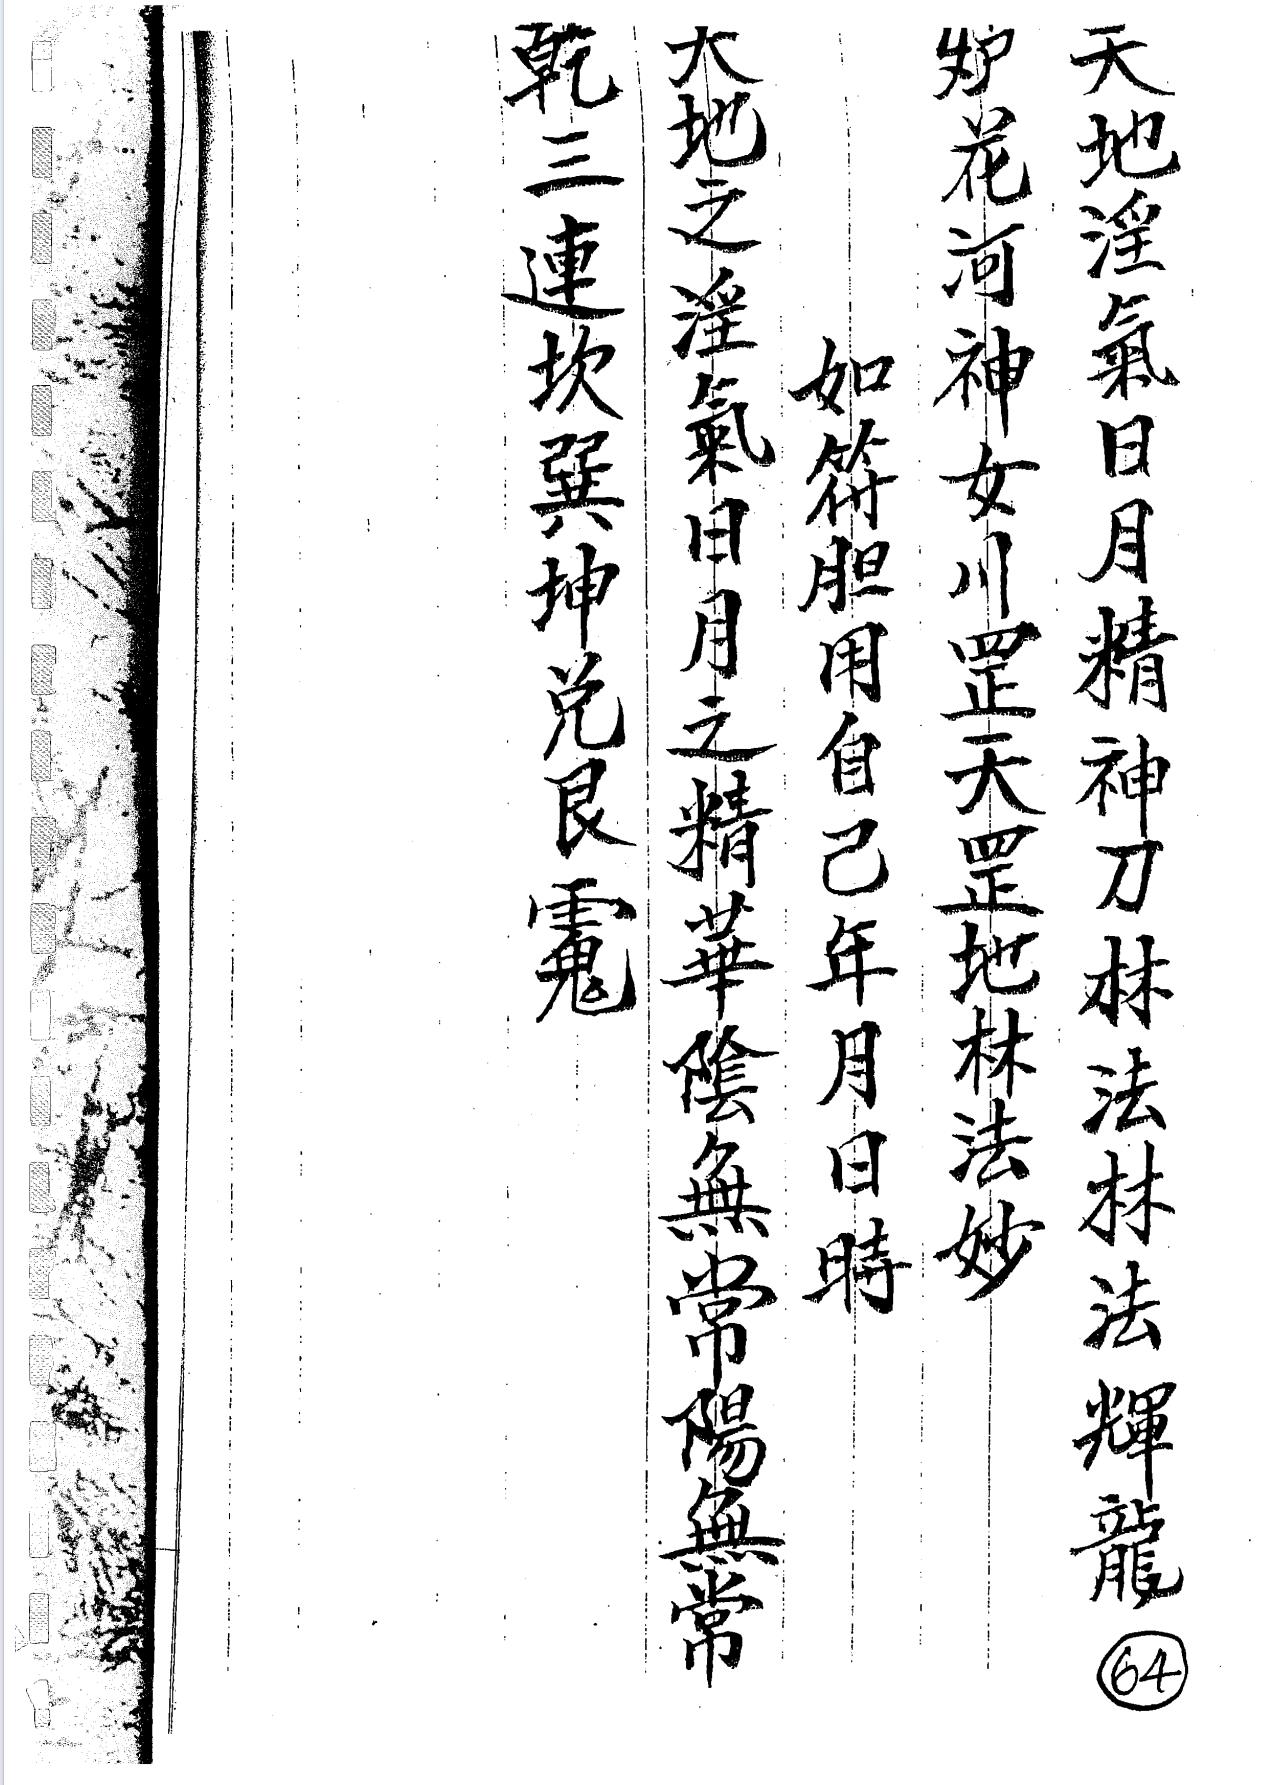 天地淫氣日月精神刀林法林法輝龍
64
妒花河神女川罡天罡地林法妙
如符胆用自己年月日時
大地之淫氣日月之精華陰無常陽無常
乾三連坎巽坤兑艮